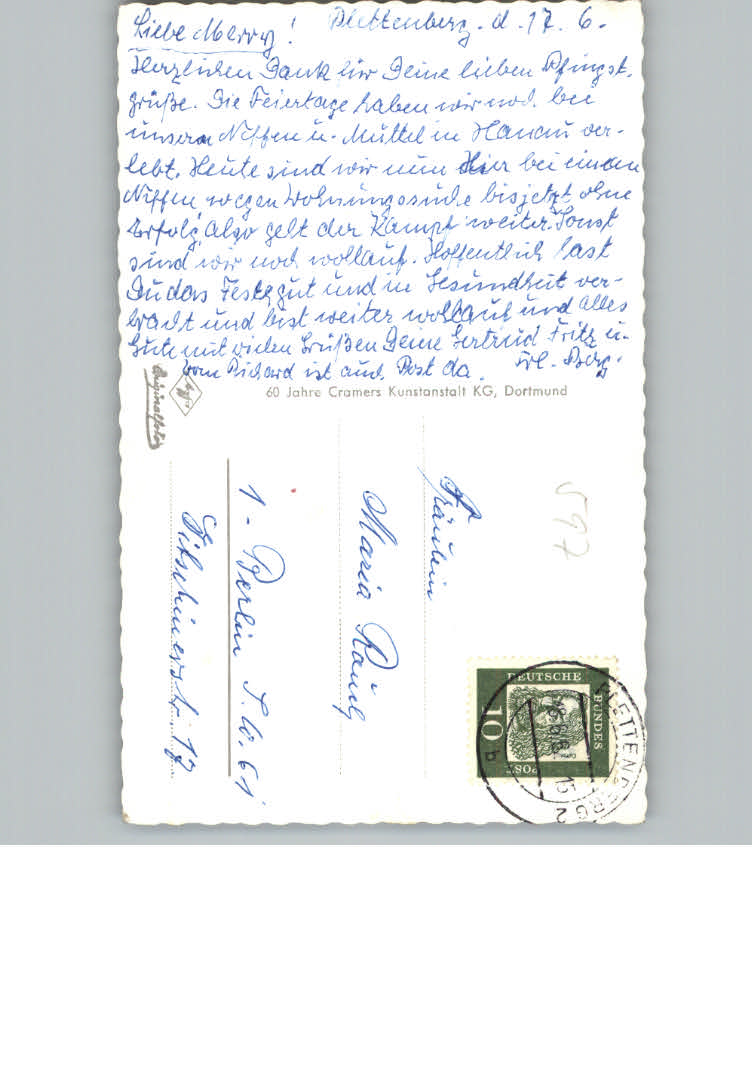 Plettenberg. d. 17. 6.
Liebe Merry!
Herzlichen Dank für Deine lieben Pfingst-
grüße. Die Feiertage haben wir noch bei
unseren Neffen u. Muttel in Hanau ver-
lebt. Heute sind wir nun hier bei einem
Neffen wegen Wohnungssuche bisjetzt ohne
Erfolg, also geht der Kampf weiter. Sonst
sind wir noch wollauf. Hoffentlich hast
Du das Fest gut und in Gesundheit ver-
bracht und bist weiter wohlauf und alles
Gute mit vielen Grüßen Deine Gertrud Fritz u.
Frl. Berg.
Vom Richard ist auch Post da.
Originalfoto
60 Jahre Cramers Kunstanstalt KG, Dortmund
597
Fräulein
Maria Rauch
1 - Berlin S.W. 61
Gitschinerstr. 17
DEUTSCHE
BUNDES
POST
10
PLETTENBERG 2
b